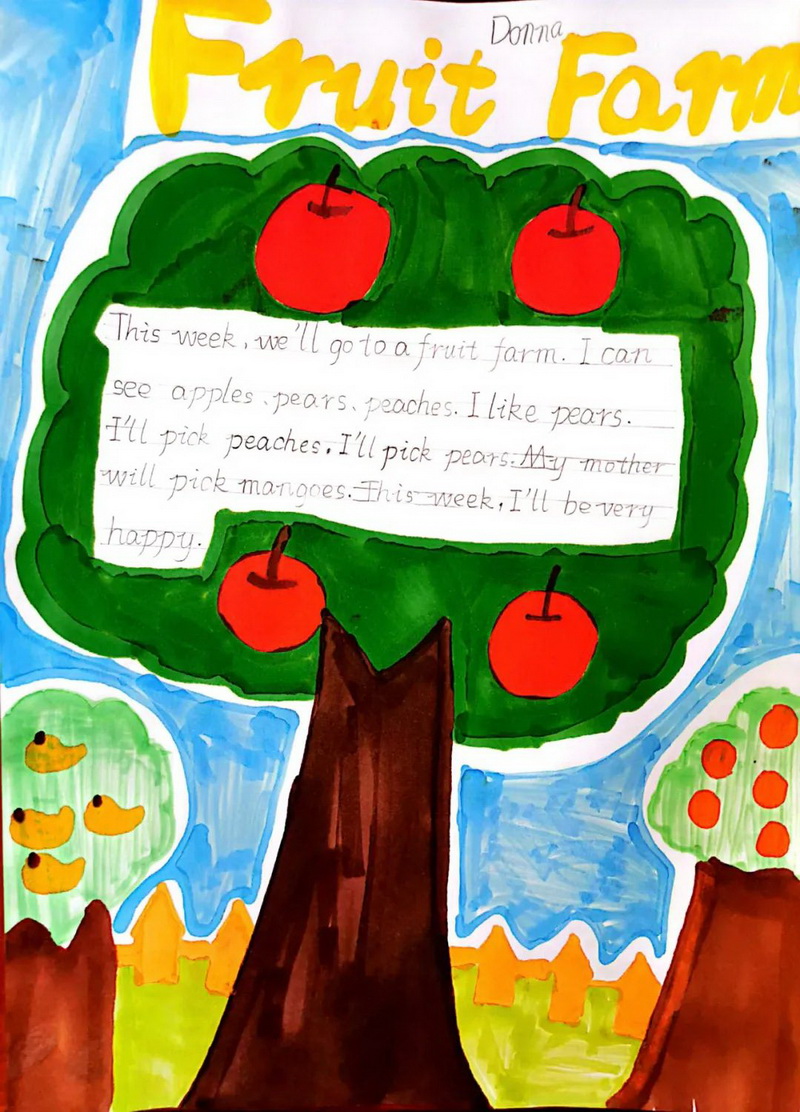 Donna
Fruit Farm
This week, we'll go to a fruit farm. I can
see apples、pears、peaches. I like pears.
I'll pick peaches. I'll pick pears. My mother
will pick mangoes. This week, I'll be very
happy.